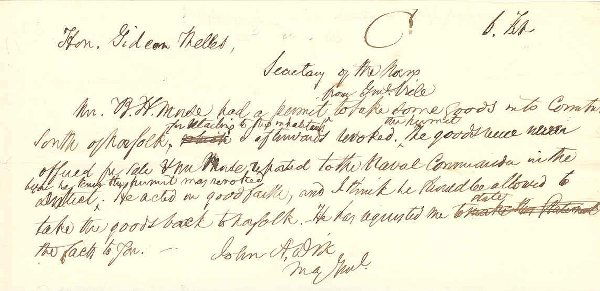 6. Feb
Hon. Gideon Welles,
Secretary of the Navy
from Genl Viele
Mr. B. H. Morse had a permit to take some goods into Counties
for retailing to the inhabitants the permit
South of Norfolk, which afterwards revoked. The goods were never
offered for sale & Mr Morse reported to the Naval Commander in the
that his permit was revoked
district, He acted in good faith, and I think he should be allowed to
state
take the goods back to Norfolk. He has requested me to make this statement
the fact to you. —
John A. Dix
Maj Genl.